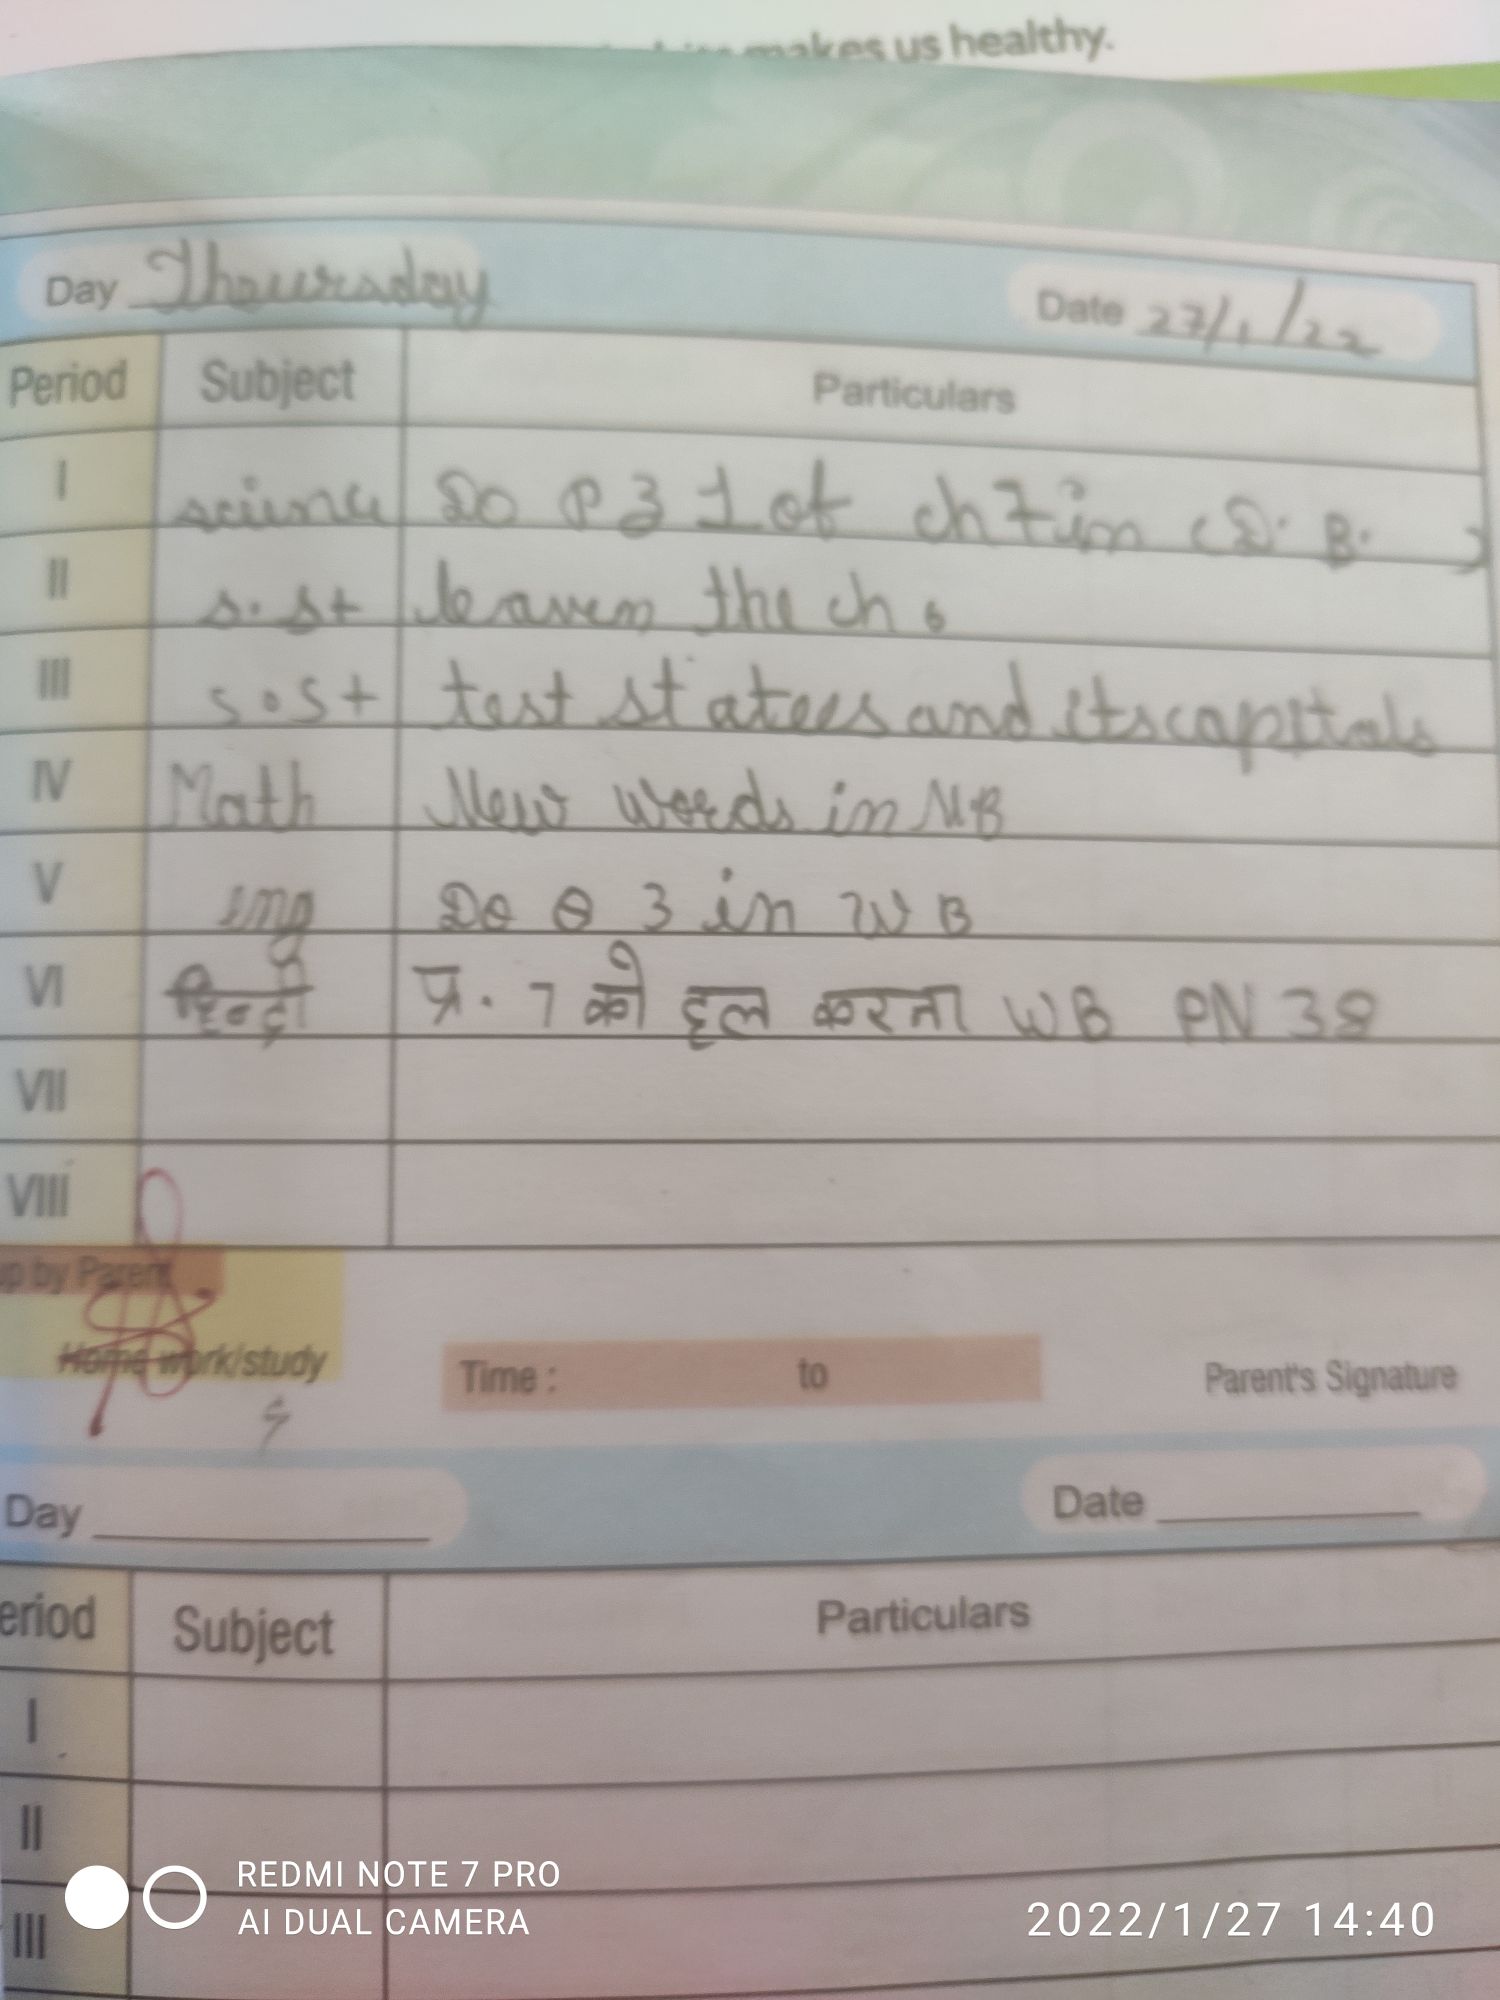 makes us healthy.
Day Thoursday Date 27/1/22
Period Subject Particulars
I science Do P 3 1 of ch 7 in (D. B. )
II s. st learn the ch 6
III s. st test states and its capitals
IV Math New words in N.B
V eng Do Q 3 in W B
VI हिन्दी प्र. 7 को हल करना WB PN 38
VII
VIII
up by Parent
Home work/study Time : to Parent's Signature
Day Date
eriod Subject Particulars
I
II
III
REDMI NOTE 7 PRO
AI DUAL CAMERA
2022/1/27 14:40